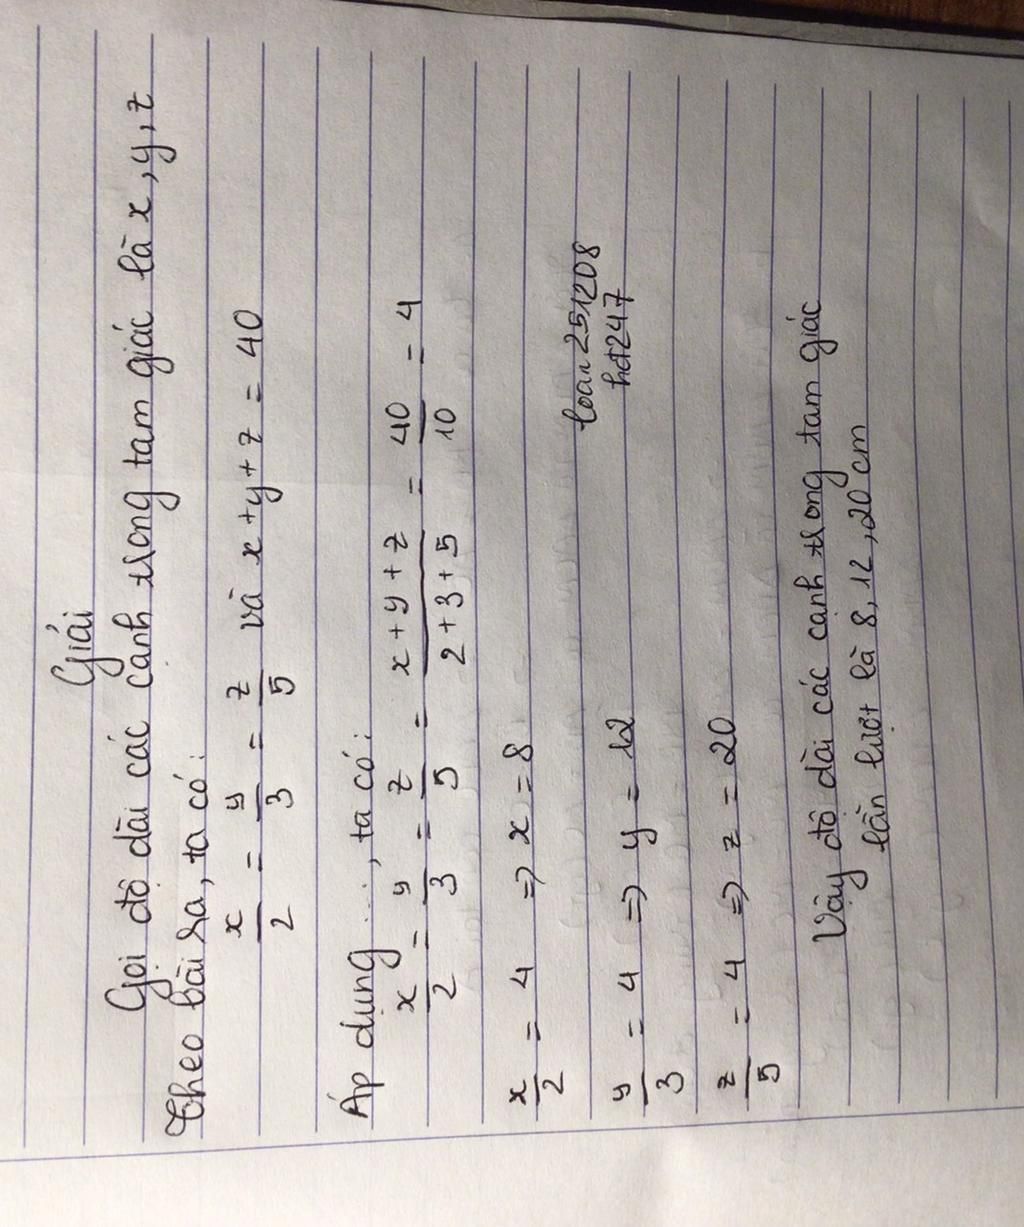 Giải
Gọi độ dài các cạnh trong tam giác là x, y, z
Theo bài ra, ta có:
x/2 = y/3 = z/5 và x + y + z = 40
Áp dụng ..., ta có:
x/2 = y/3 = z/5 = (x + y + z)/(2 + 3 + 5) = 40/10 = 4
x/2 = 4 => x = 8
loan251208
hdt247
y/3 = 4 => y = 12
z/5 = 4 => z = 20
Vậy độ dài các cạnh trong tam giác
lần lượt là 8, 12, 20 cm